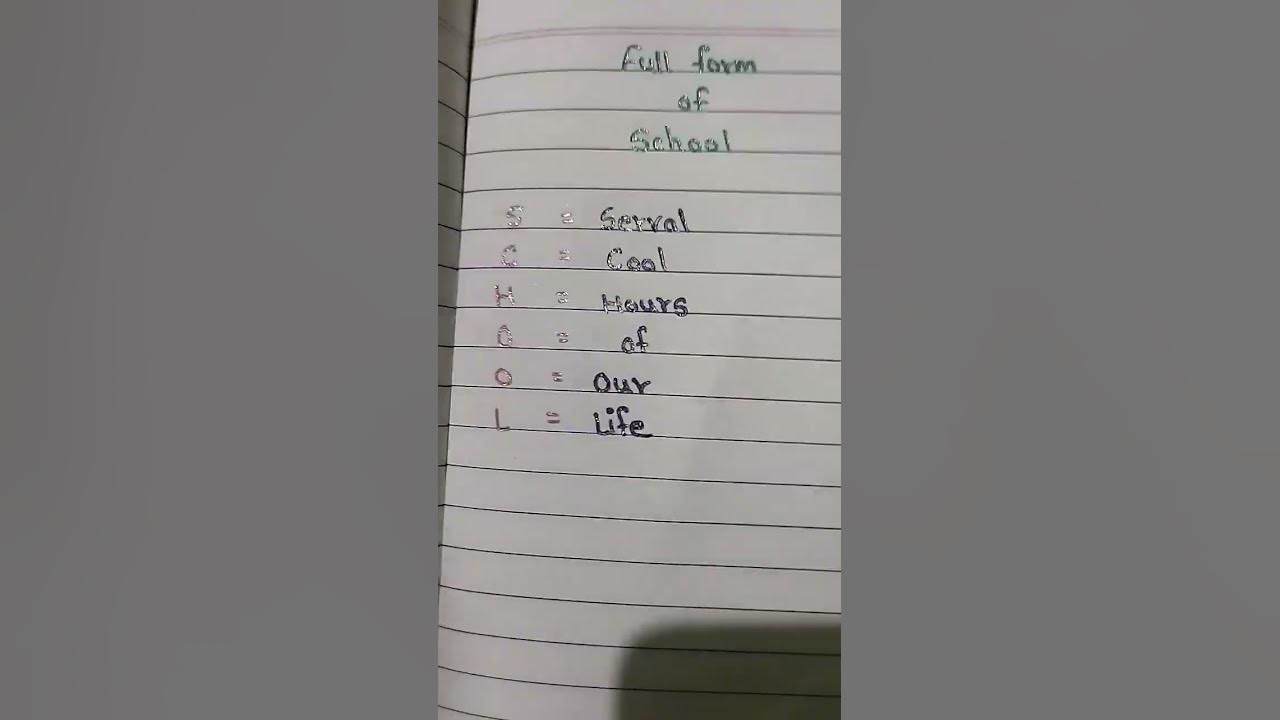 Full form
of
School
S = Serval
C = Cool
H = Hours
O = of
O = Our
L = Life